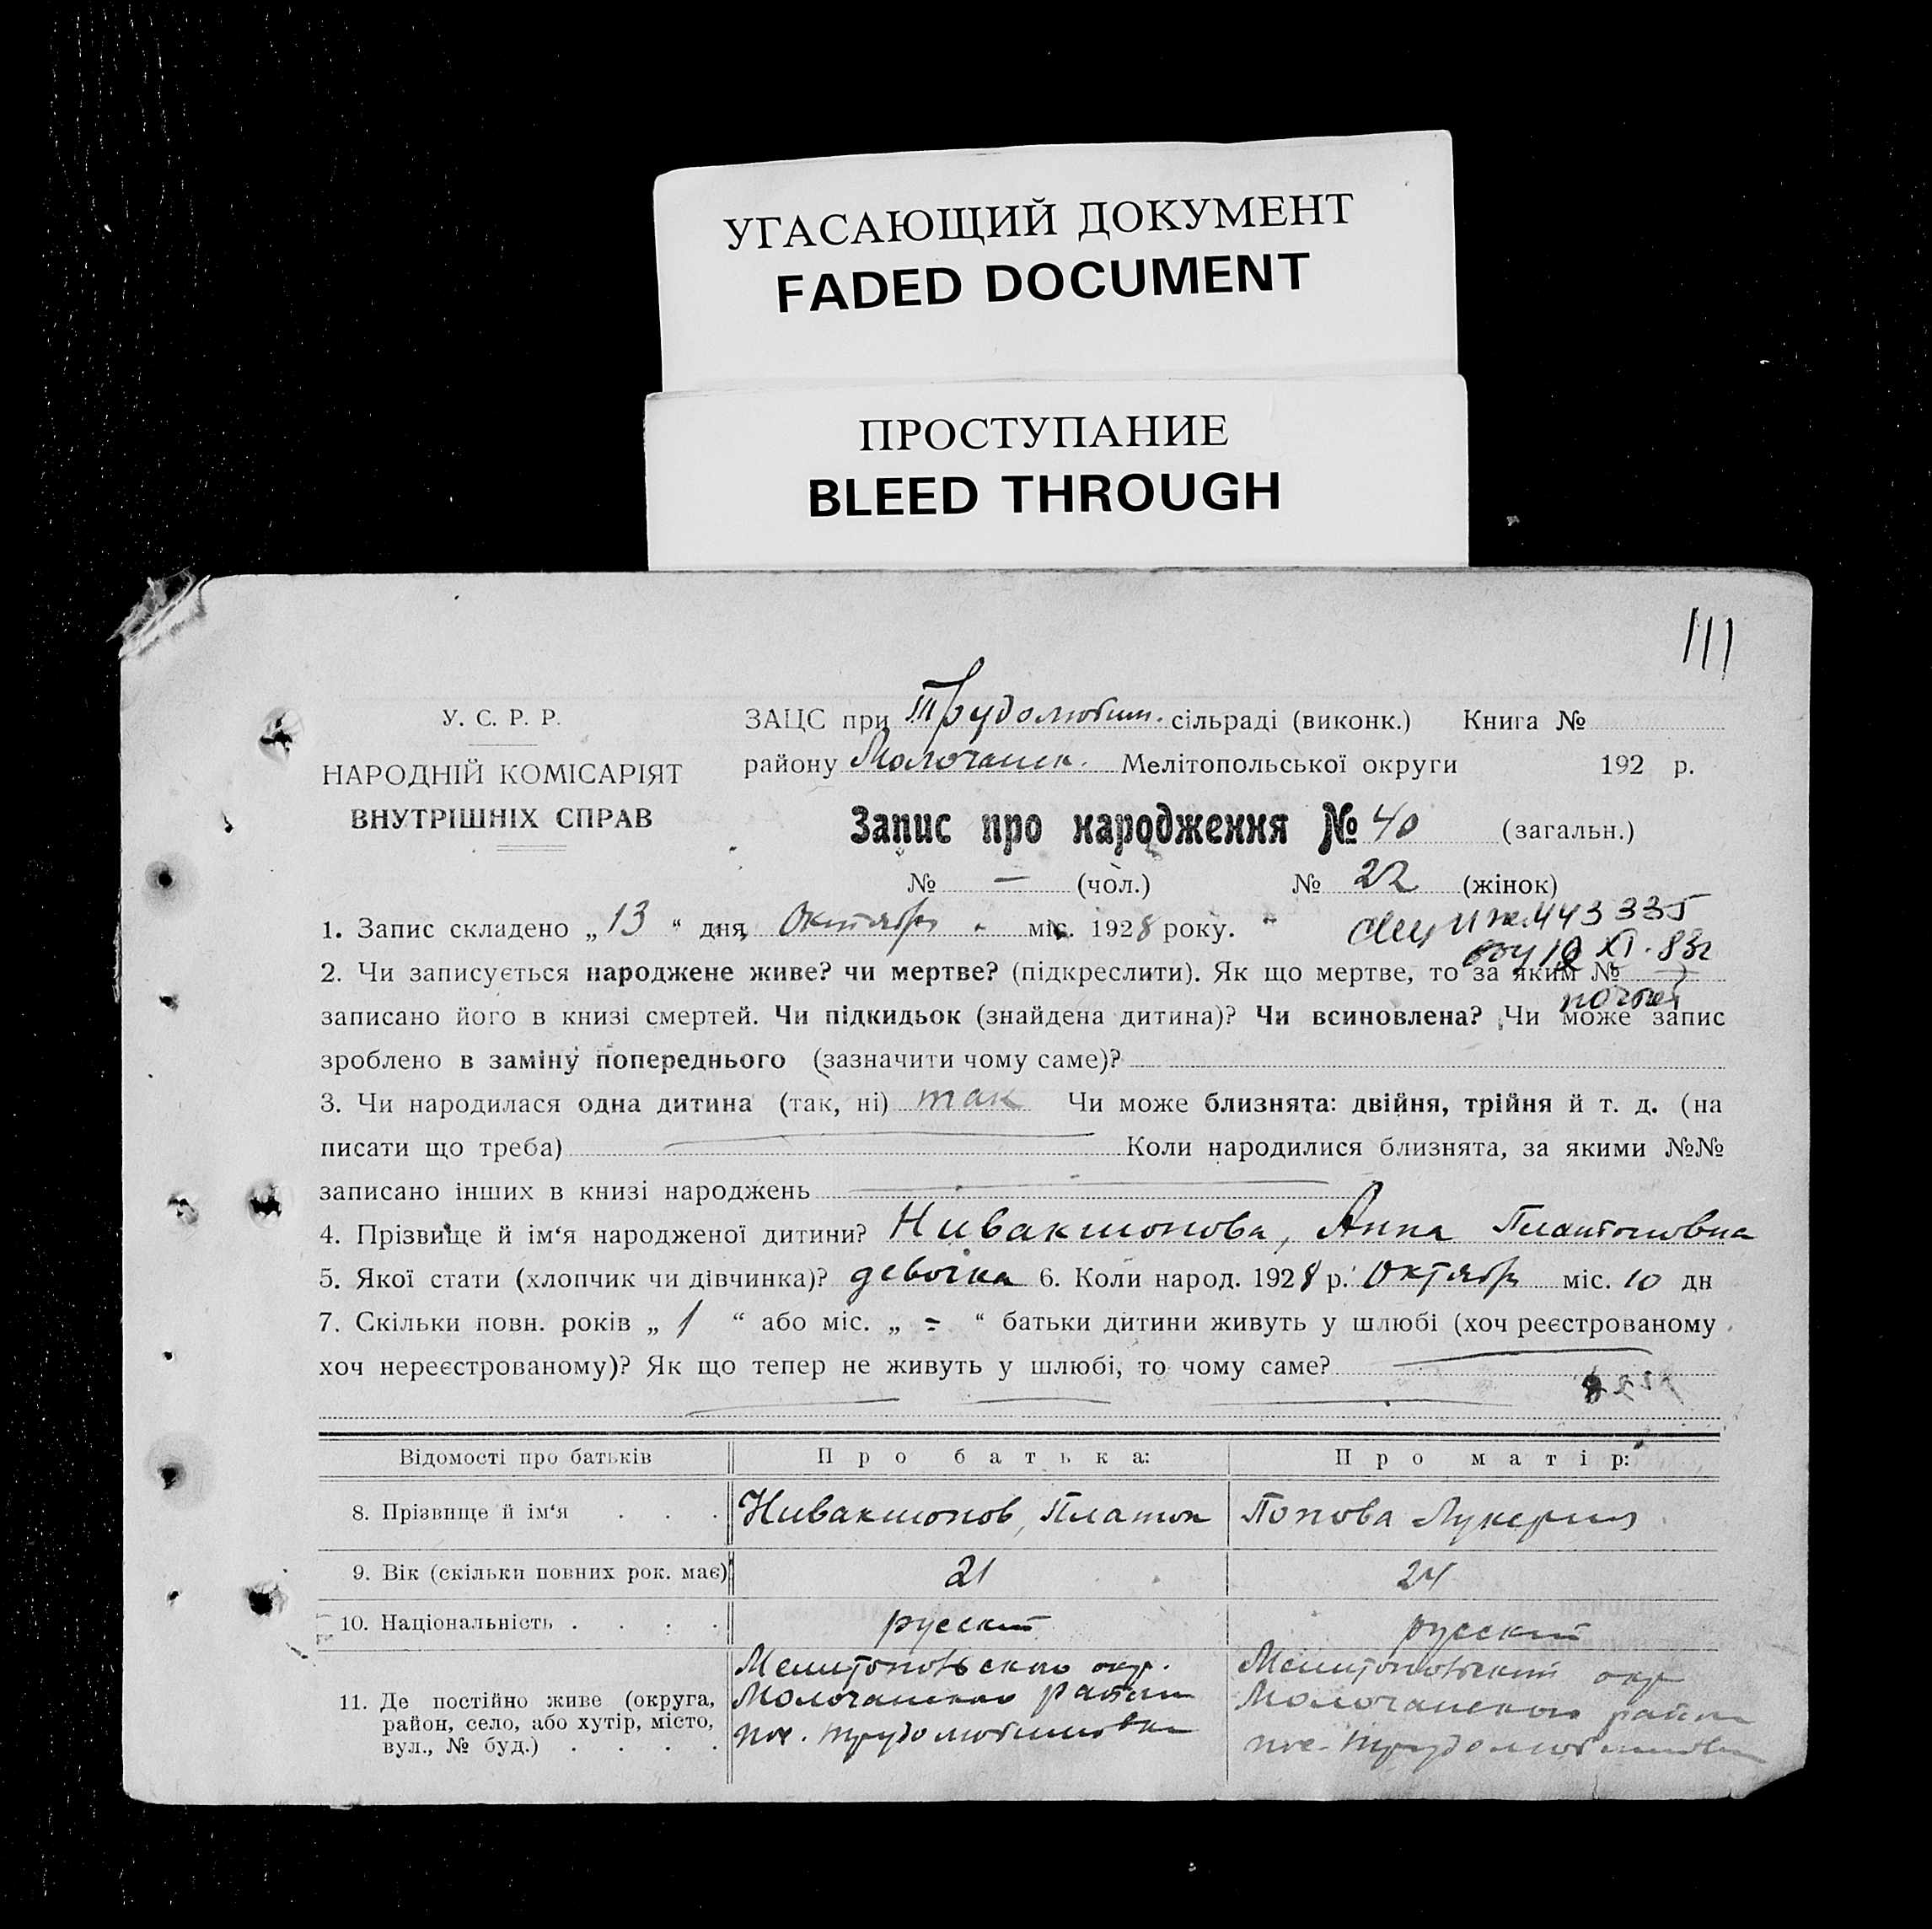 УГАСАЮЩИЙ ДОКУМЕНТ
FADED DOCUMENT
ПРОСТУПАНИЕ
BLEED THROUGH
111
У. С. Р. Р.
НАРОДНІЙ КОМІСАРІЯТ
ВНУТРІШНІХ СПРАВ
ЗАЦС при Трудолюбим. сільраді (виконк.) Книга №
району Молочанск. Мелітопольської округи 192 р.
Запис про народження № 40 (загальн.)
№ — (чол.) № 22 (жінок)
1. Запис складено „13“ дня Октября міс. 1928 року.
443335
XI. 83г
2. Чи записується народжене живе? чи мертве? (підкреслити). Як що мертве, то за яким №
записано його в книзі смертей. Чи підкидьок (знайдена дитина)? Чи всиновлена? Чи може запис
зроблено в заміну попереднього (зазначити чому саме)?
3. Чи народилася одна дитина (так, ні) так Чи може близнята: двійня, трійня й т. д. (на
писати що треба) Коли народилися близнята, за якими №№
записано інших в книзі народжень
4. Прізвище й ім‘я народженої дитини? Нивакшонова, Анна Платоновна
5. Якої стати (хлопчик чи дівчинка)? девочка 6. Коли народ. 1928 р. Октябр міс. 10 дн
7. Скільки повн. років „ 1 “ або міс. „ - “ батьки дитини живуть у шлюбі (хоч реєстрованому
хоч нереєстрованому)? Як що тепер не живуть у шлюбі, то чому саме?
Відомості про батьків Про батька: Про матір:
8. Прізвище й ім‘я . . . Нивакшонов, Платон Попова Лукерия
9. Вік (скільки повних рок. має) 21 24
10. Національність . . . . русский русский
11. Де постійно живе (округа, район, село, або хутір, місто, вул., № буд.) . . . .
Мелитопольского окр. Молочанского района пос. Трудолюбимовка
Мелитопольский окр Молочанского района пос. Трудолюбимовка